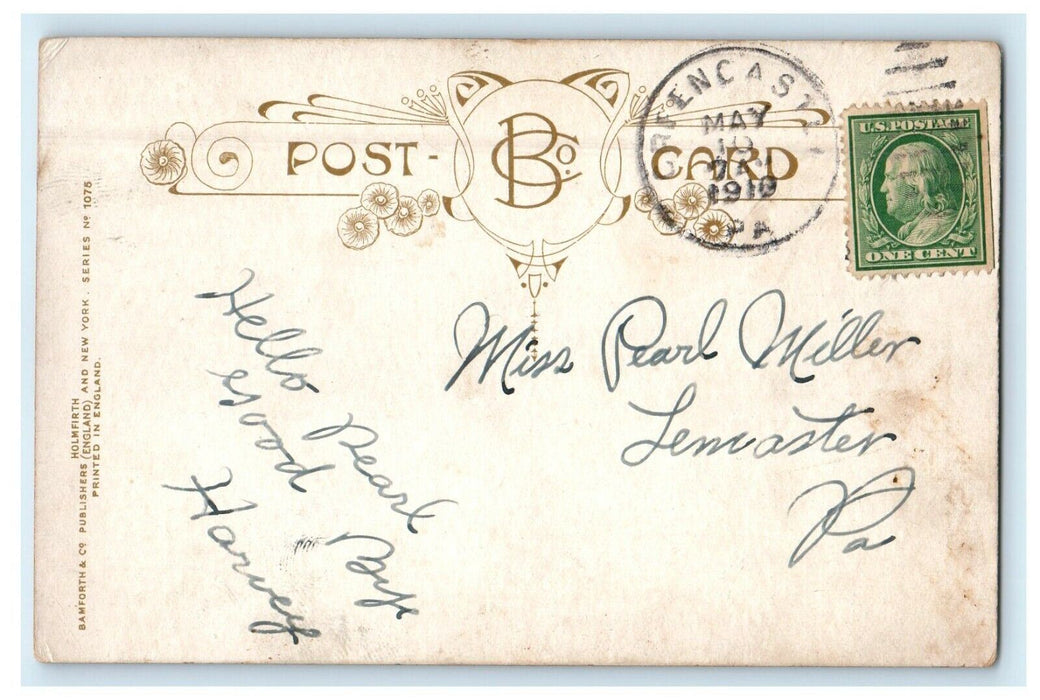 POST- BCo. CARD
GREENCASTLE
MAY
10
1910
PA
U.S. POSTAGE
ONE CENT
Miss Pearl Miller
Lencaster
Pa
Hello Pearl
Good Byf
Harvey
BAMFORTH & Co PUBLISHERS (ENGLAND) AND NEW YORK. SERIES No 1075
HOLMFIRTH
PRINTED IN ENGLAND.